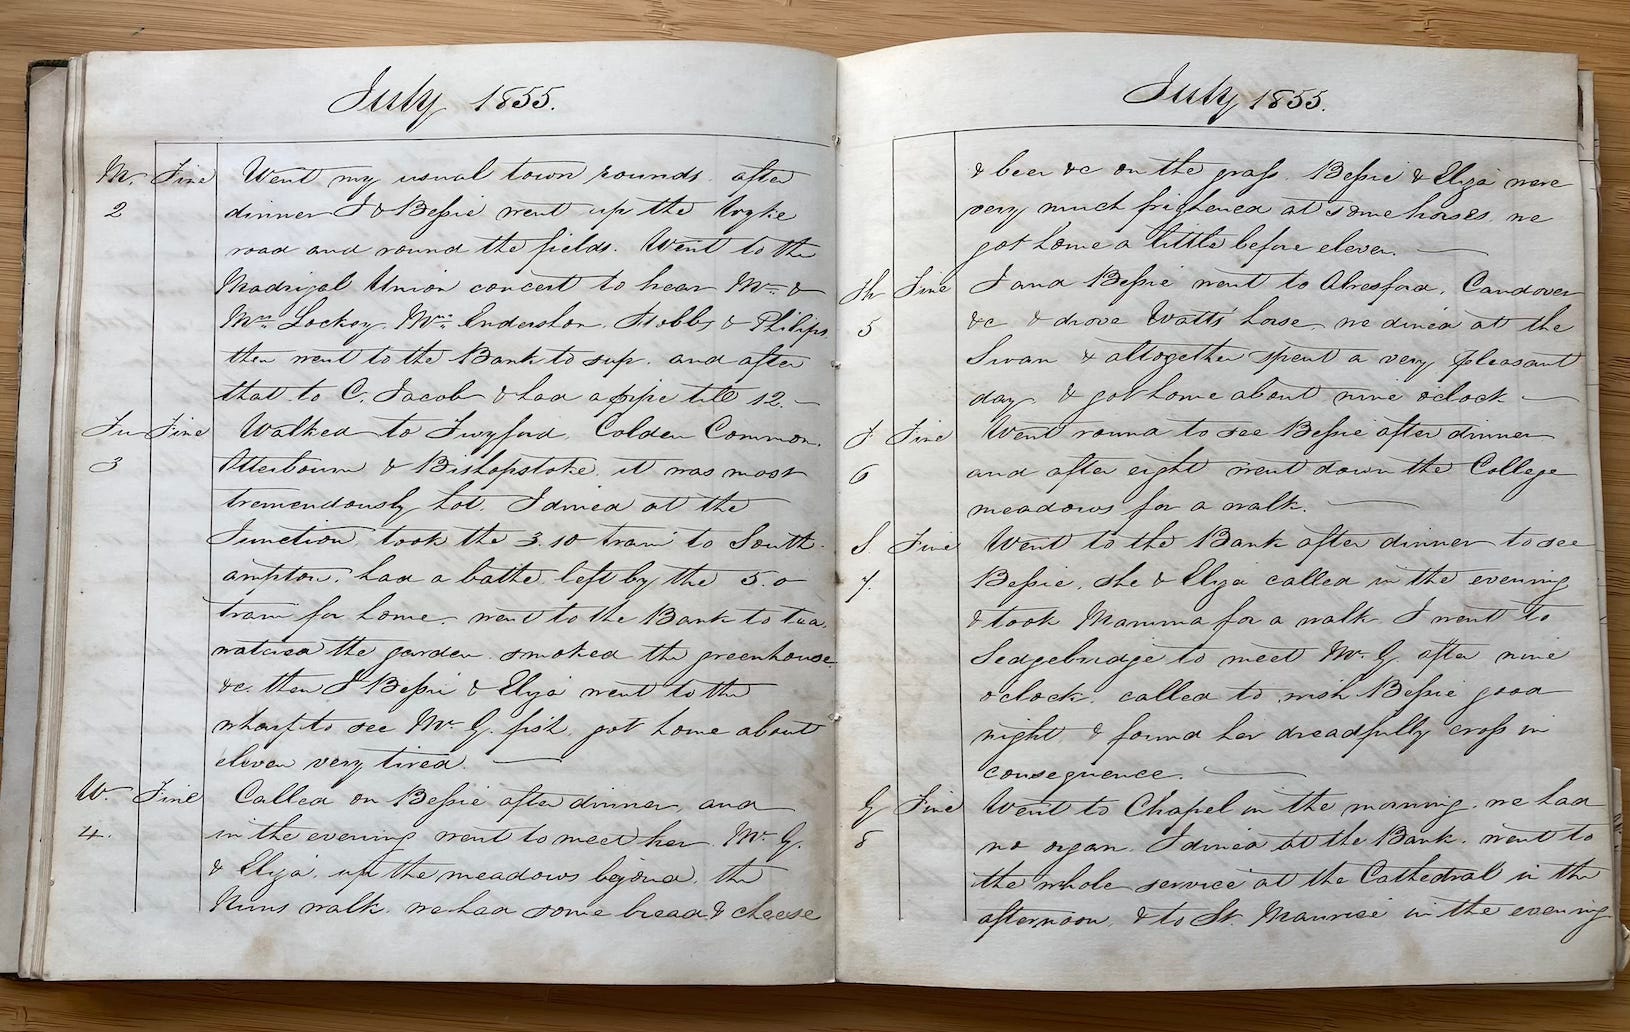 July 1855.
M. Fine Went my usual town rounds. after
2 dinner I & Bessie went up the Wyke
road and round the fields. Went to the
Madrigal Union concert to hear Mr. &
Mrs. Lockey, Mrs. Enderssohn, Hobbs & Philips,
then went to the Bank to sup. and after
that to C. Jacob & had a pipe till 12. —
Tu Fine Walked to Twyford, Colden Common,
3 Otterbourn & Bishopstoke, it was most
tremendously hot. I dined at the
Junction, took the 3.10 train to South-
ampton, had a bathe, left by the 5.0
train for home, went to the Bank to tea,
watered the garden, smoked the greenhouse
&c. then I Bessie & Eliza went to the
wharf to see Mr. G. fish, got home about
eleven very tired. —
W. Fine Called on Bessie after dinner, and
4. in the evening went to meet her, Mr. G.
& Eliza, up the meadows beyond, the
Nuns walk, we had some bread & cheese
July 1855.
& beer &c on the grass. Bessie & Eliza were
very much frightened at some horses, we
got home a little before eleven. —
Th Fine I and Bessie went to Alresford, Candover
5 &c & drove Watts' horse, we dined at the
Swan & altogether spent a very pleasant
day, & got home about nine o'clock —
F Fine Went round to see Bessie after dinner
6 and after eight went down the College
meadows for a walk. —
S. Fine Went to the Bank after dinner to see
7. Bessie, she & Eliza called in the evening
& took Mamma for a walk. I went to
Sedgebridge to meet Mr. G. after nine
o'clock, called to wish Bessie good
night, & found her dreadfully cross in
consequence. —
G Fine Went to Chapel in the morning, we had
8 no organ. I dined at the Bank, went to
the whole service at the Cathedral in the
afternoon, & to St. Maurice in the evening